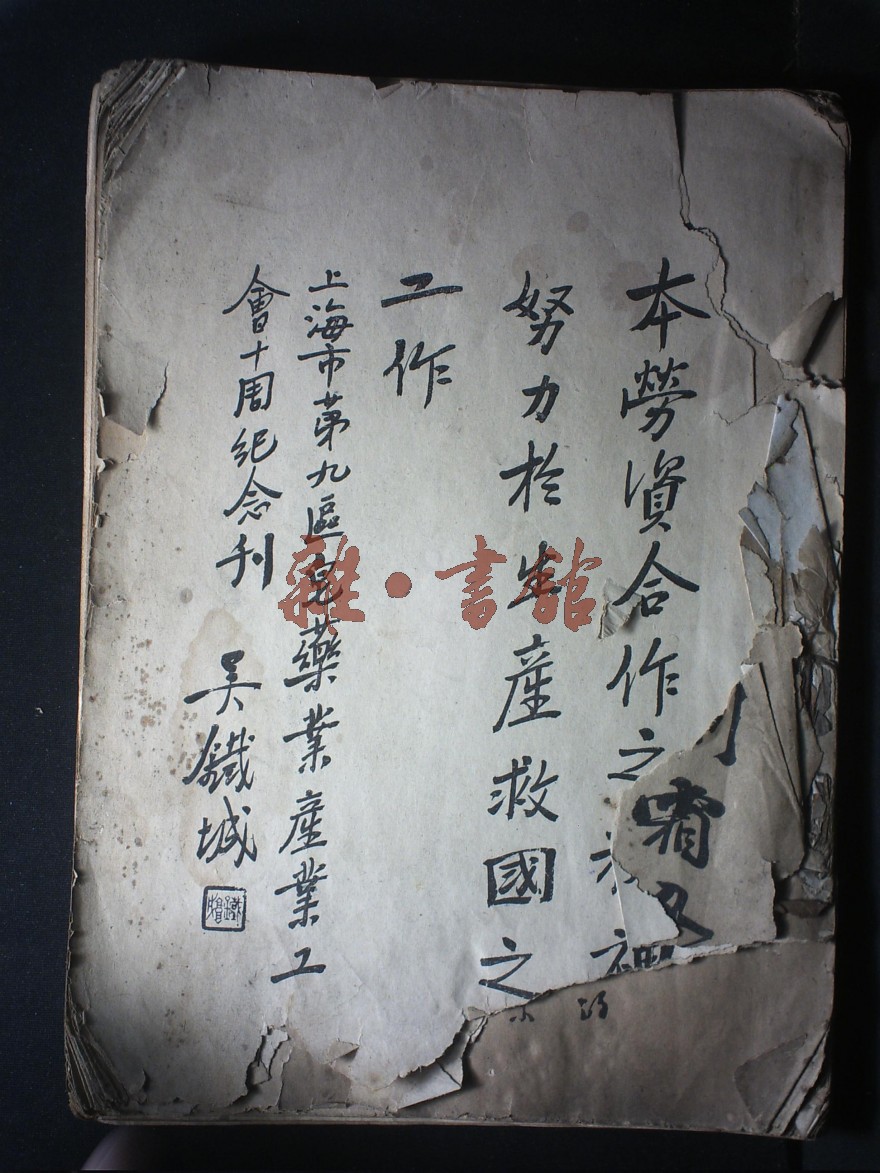 本勞資合作之精神
努力於生產救國之
工作
上海市第九區皂藥業產業工
會十周紀念刊
吳鐵城
霜
雜·書館